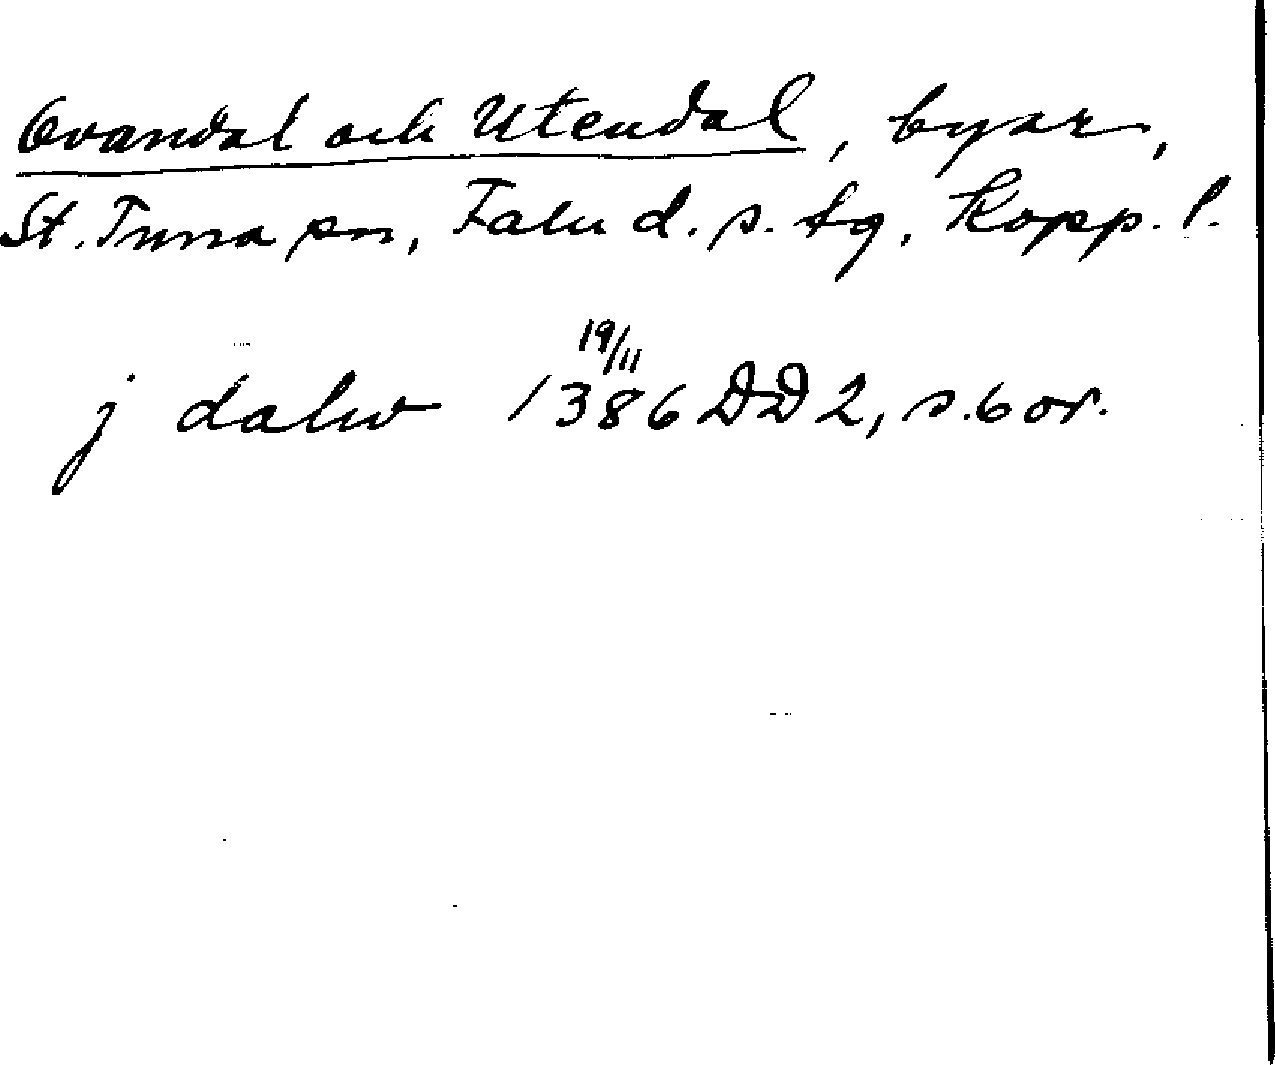 Ovandal och Utendal, byar,
St. Tuna sn, Falu d. s. tg, Kopp. l.
j daluv 19/11 1386 DD 2, s. 6 or.